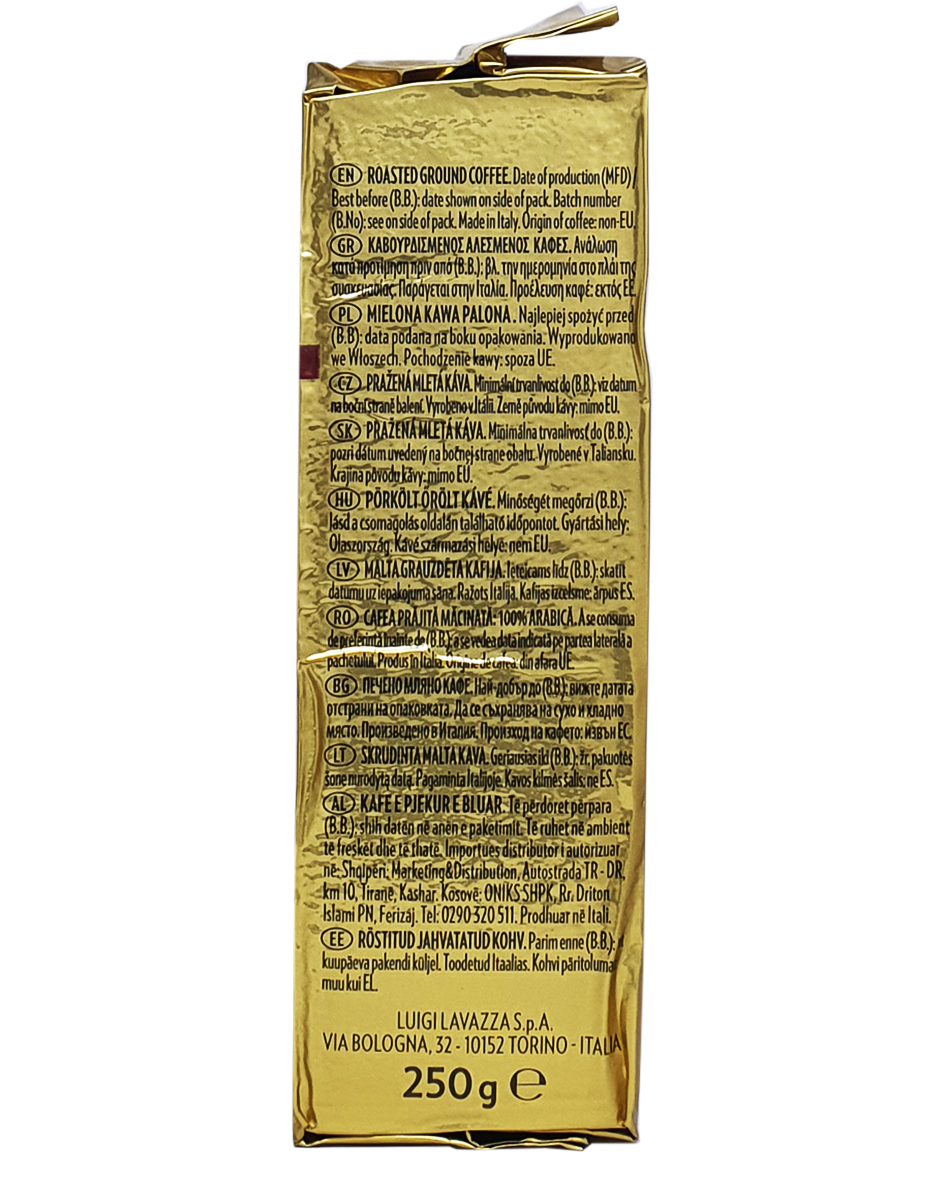 EN ROASTED GROUND COFFEE. Date of production (MFD) /
Best before (B.B.): date shown on side of pack. Batch number
(B.No): see on side of pack. Made in Italy. Origin of coffee: non-EU.
GR ΚΑΒΟΥΡΔΙΣΜΕΝΟΣ ΑΛΕΣΜΕΝΟΣ ΚΑΦΕΣ. Ανάλωση
κατά προτίμηση πριν από (B.B.): βλ. την ημερομηνία στο πλάι της
συσκευασίας. Παράγεται στην Ιταλία. Προέλευση καφέ: εκτός ΕΕ.
PL MIELONA KAWA PALONA. Najlepiej spożyć przed
(B.B): data podana na boku opakowania. Wyprodukowano
we Włoszech. Pochodzenie kawy: spoza UE.
CZ PRAŽENÁ MLETÁ KÁVA. Minimální trvanlivost do (B.B.): viz datum
na boční straně balení. Vyrobeno v Itálii. Země původu kávy: mimo EU.
SK PRAŽENÁ MLETÁ KÁVA. Minimálna trvanlivosť do (B.B.):
pozri dátum uvedený na bočnej strane obalu. Vyrobené v Taliansku.
Krajina pôvodu kávy: mimo EÚ.
HU PÖRKÖLT ŐRÖLT KÁVÉ. Minőségét megőrzi (B.B.):
lásd a csomagolás oldalán található időpontot. Gyártási hely:
Olaszország. Kávé származási helye: nem EU.
LV MALTA GRAUZDĒTA KAFIJA. Ieteicams līdz (B.B.): skatīt
datumu uz iepakojuma sāna. Ražots Itālijā. Kafijas izcelsme: ārpus ES.
RO CAFEA PRĂJITĂ MĂCINATĂ: 100% ARABICĂ. A se consuma
de preferință înainte de (B.B.): a se vedea data indicată pe partea laterală a
pachetului. Produs în Italia. Origine de cafea: din afara UE.
BG ПЕЧЕНО МЛЯНО КАФЕ. Най-добър до (B.B.): вижте датата
отстрани на опаковката. Да се съхранява на сухо и хладно
място. Произведено в Италия. Произход на кафето: извън ЕС.
LT SKRUDINTA MALTA KAVA. Geriausias iki (B.B.): žr. pakuotės
šone nurodytą datą. Pagaminta Italijoje. Kavos kilmės šalis: ne ES.
AL KAFE E PJEKUR E BLUAR. Të përdoret përpara
(B.B.): shih datën në anën e paketimit. Të ruhet në ambient
të freskët dhe të thatë. Importues distributor i autorizuar
në: Shqipëri: Marketing&Distribution, Autostrada TR - DR,
km 10, Tiranë, Kashar. Kosovë: ONIKS SHPK, Rr. Driton
Islami PN, Ferizaj. Tel: 0290 320 511. Prodhuar në Itali.
EE RÖSTITUD JAHVATATUD KOHV. Parim enne (B.B.):
kuupäeva pakendi küljel. Toodetud Itaalias. Kohvi päritolumaa
muu kui EL.
LUIGI LAVAZZA S.p.A.
VIA BOLOGNA, 32 - 10152 TORINO - ITALIA
250 g ℮